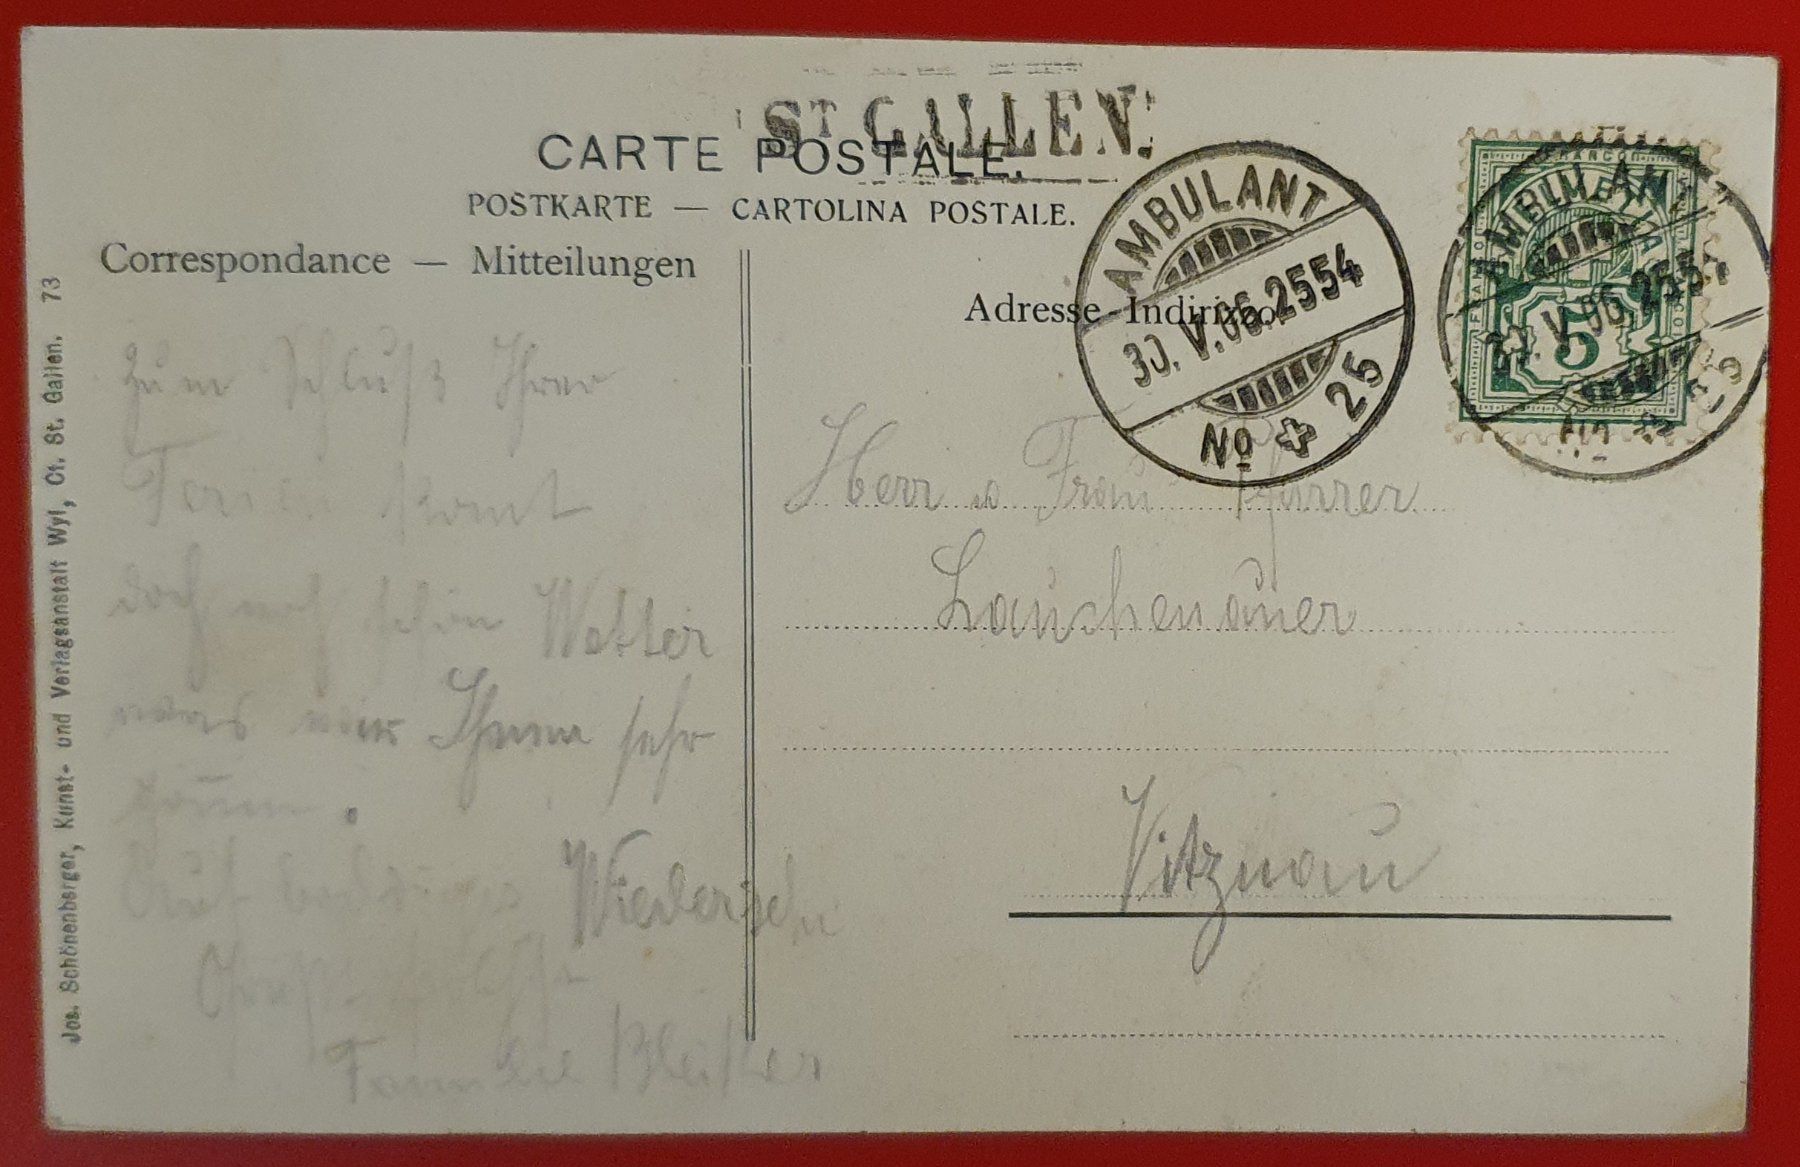 ST GALLEN.
CARTE POSTALE.
POSTKARTE — CARTOLINA POSTALE.
Correspondance — Mitteilungen
Adresse-Indirizzo.
AMBULANT
30. V. 06. 2554
No 25
AMBULANT
30. V. 06. 2554
FRANCO
HELVETIA
FRANCO
5
zum Schluß Ihrer
Ferien kommt
doch noch schön Wetter
was wir Ihnen sehr
gönnen.
Auf baldiges Wiedersehn
Familie
Herr u Frau Pfarrer
Lauchenauer
Vitznau
Jos. Schönenberger, Kunst- und Verlagsanstalt Wyl, Ct. St. Gallen. 73